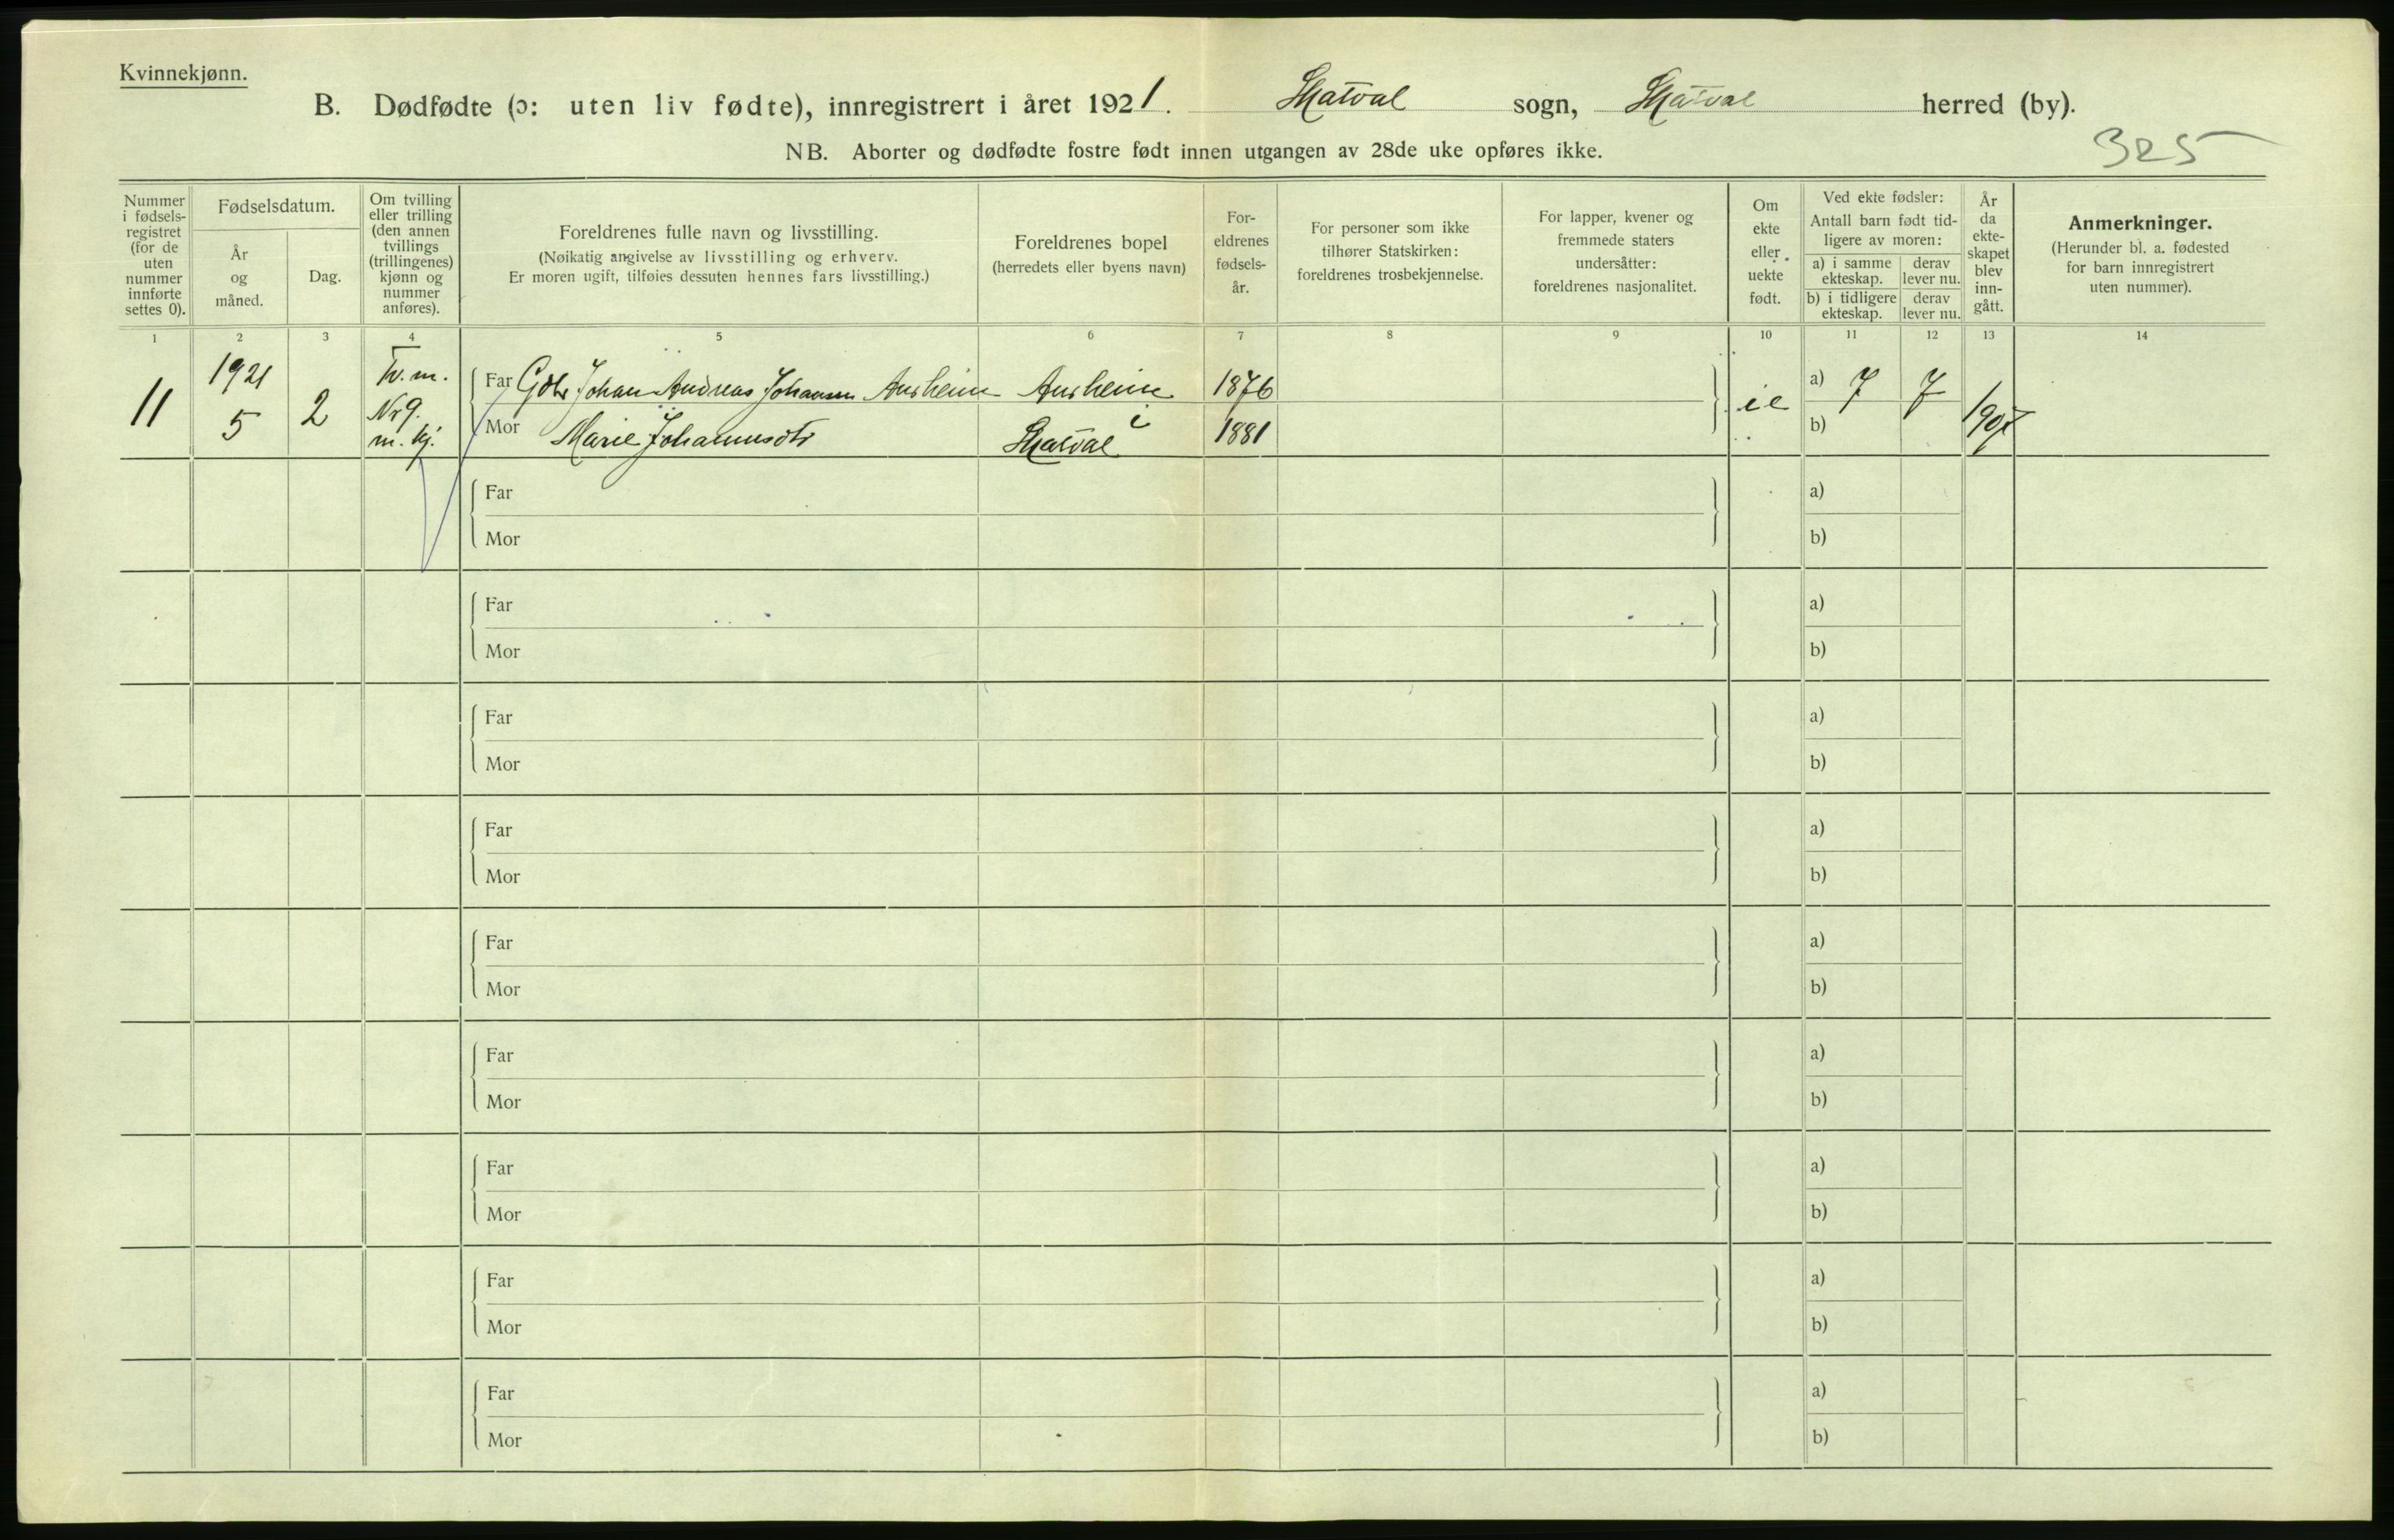 Kvinnekjønn.
B. Dødfødte (ɔ: uten liv fødte), innregistrert i året 1921. Skatval sogn, Skatval herred (by).
NB. Aborter og dødfødte fostre født innen utgangen av 28de uke opføres ikke.
325
Nummer i fødsels-registret (for de uten nummer innførte settes 0).
Fødselsdatum.
År og måned.
Dag.
Om tvilling eller trilling (den annen tvillings (trillingenes) kjønn og nummer anføres).
Foreldrenes fulle navn og livsstilling.
(Nøikatig angivelse av livsstilling og erhverv.
Er moren ugift, tilføies dessuten hennes fars livsstilling.)
Foreldrenes bopel
(herredets eller byens navn)
For-eldrenes fødsels-år.
For personer som ikke tilhører Statskirken: foreldrenes trosbekjennelse.
For lapper, kvener og fremmede staters undersåtter: foreldrenes nasjonalitet.
Om ekte eller uekte født.
Ved ekte fødsler:
Antall barn født tid-ligere av moren:
a) i samme ekteskap.
derav lever nu.
b) i tidligere ekteskap.
derav lever nu.
År da ekte-skapet blev inn-gått.
Anmerkninger.
(Herunder bl. a. fødested for barn innregistrert uten nummer).
1 2 3 4 5 6 7 8 9 10 11 12 13 14
11 1921 5 2 Tv. m. Nr 9. m. kj.
Far Gbr Johan Andreas Johansen Ausheim Ausheim 1876 a) 7 7
Mor Marie Johannesdtr i Skatval 1881 b) 1907
Far a)
Mor b)
Far a)
Mor b)
Far a)
Mor b)
Far a)
Mor b)
Far a)
Mor b)
Far a)
Mor b)
Far a)
Mor b)
Far a)
Mor b)
Far a)
Mor b)